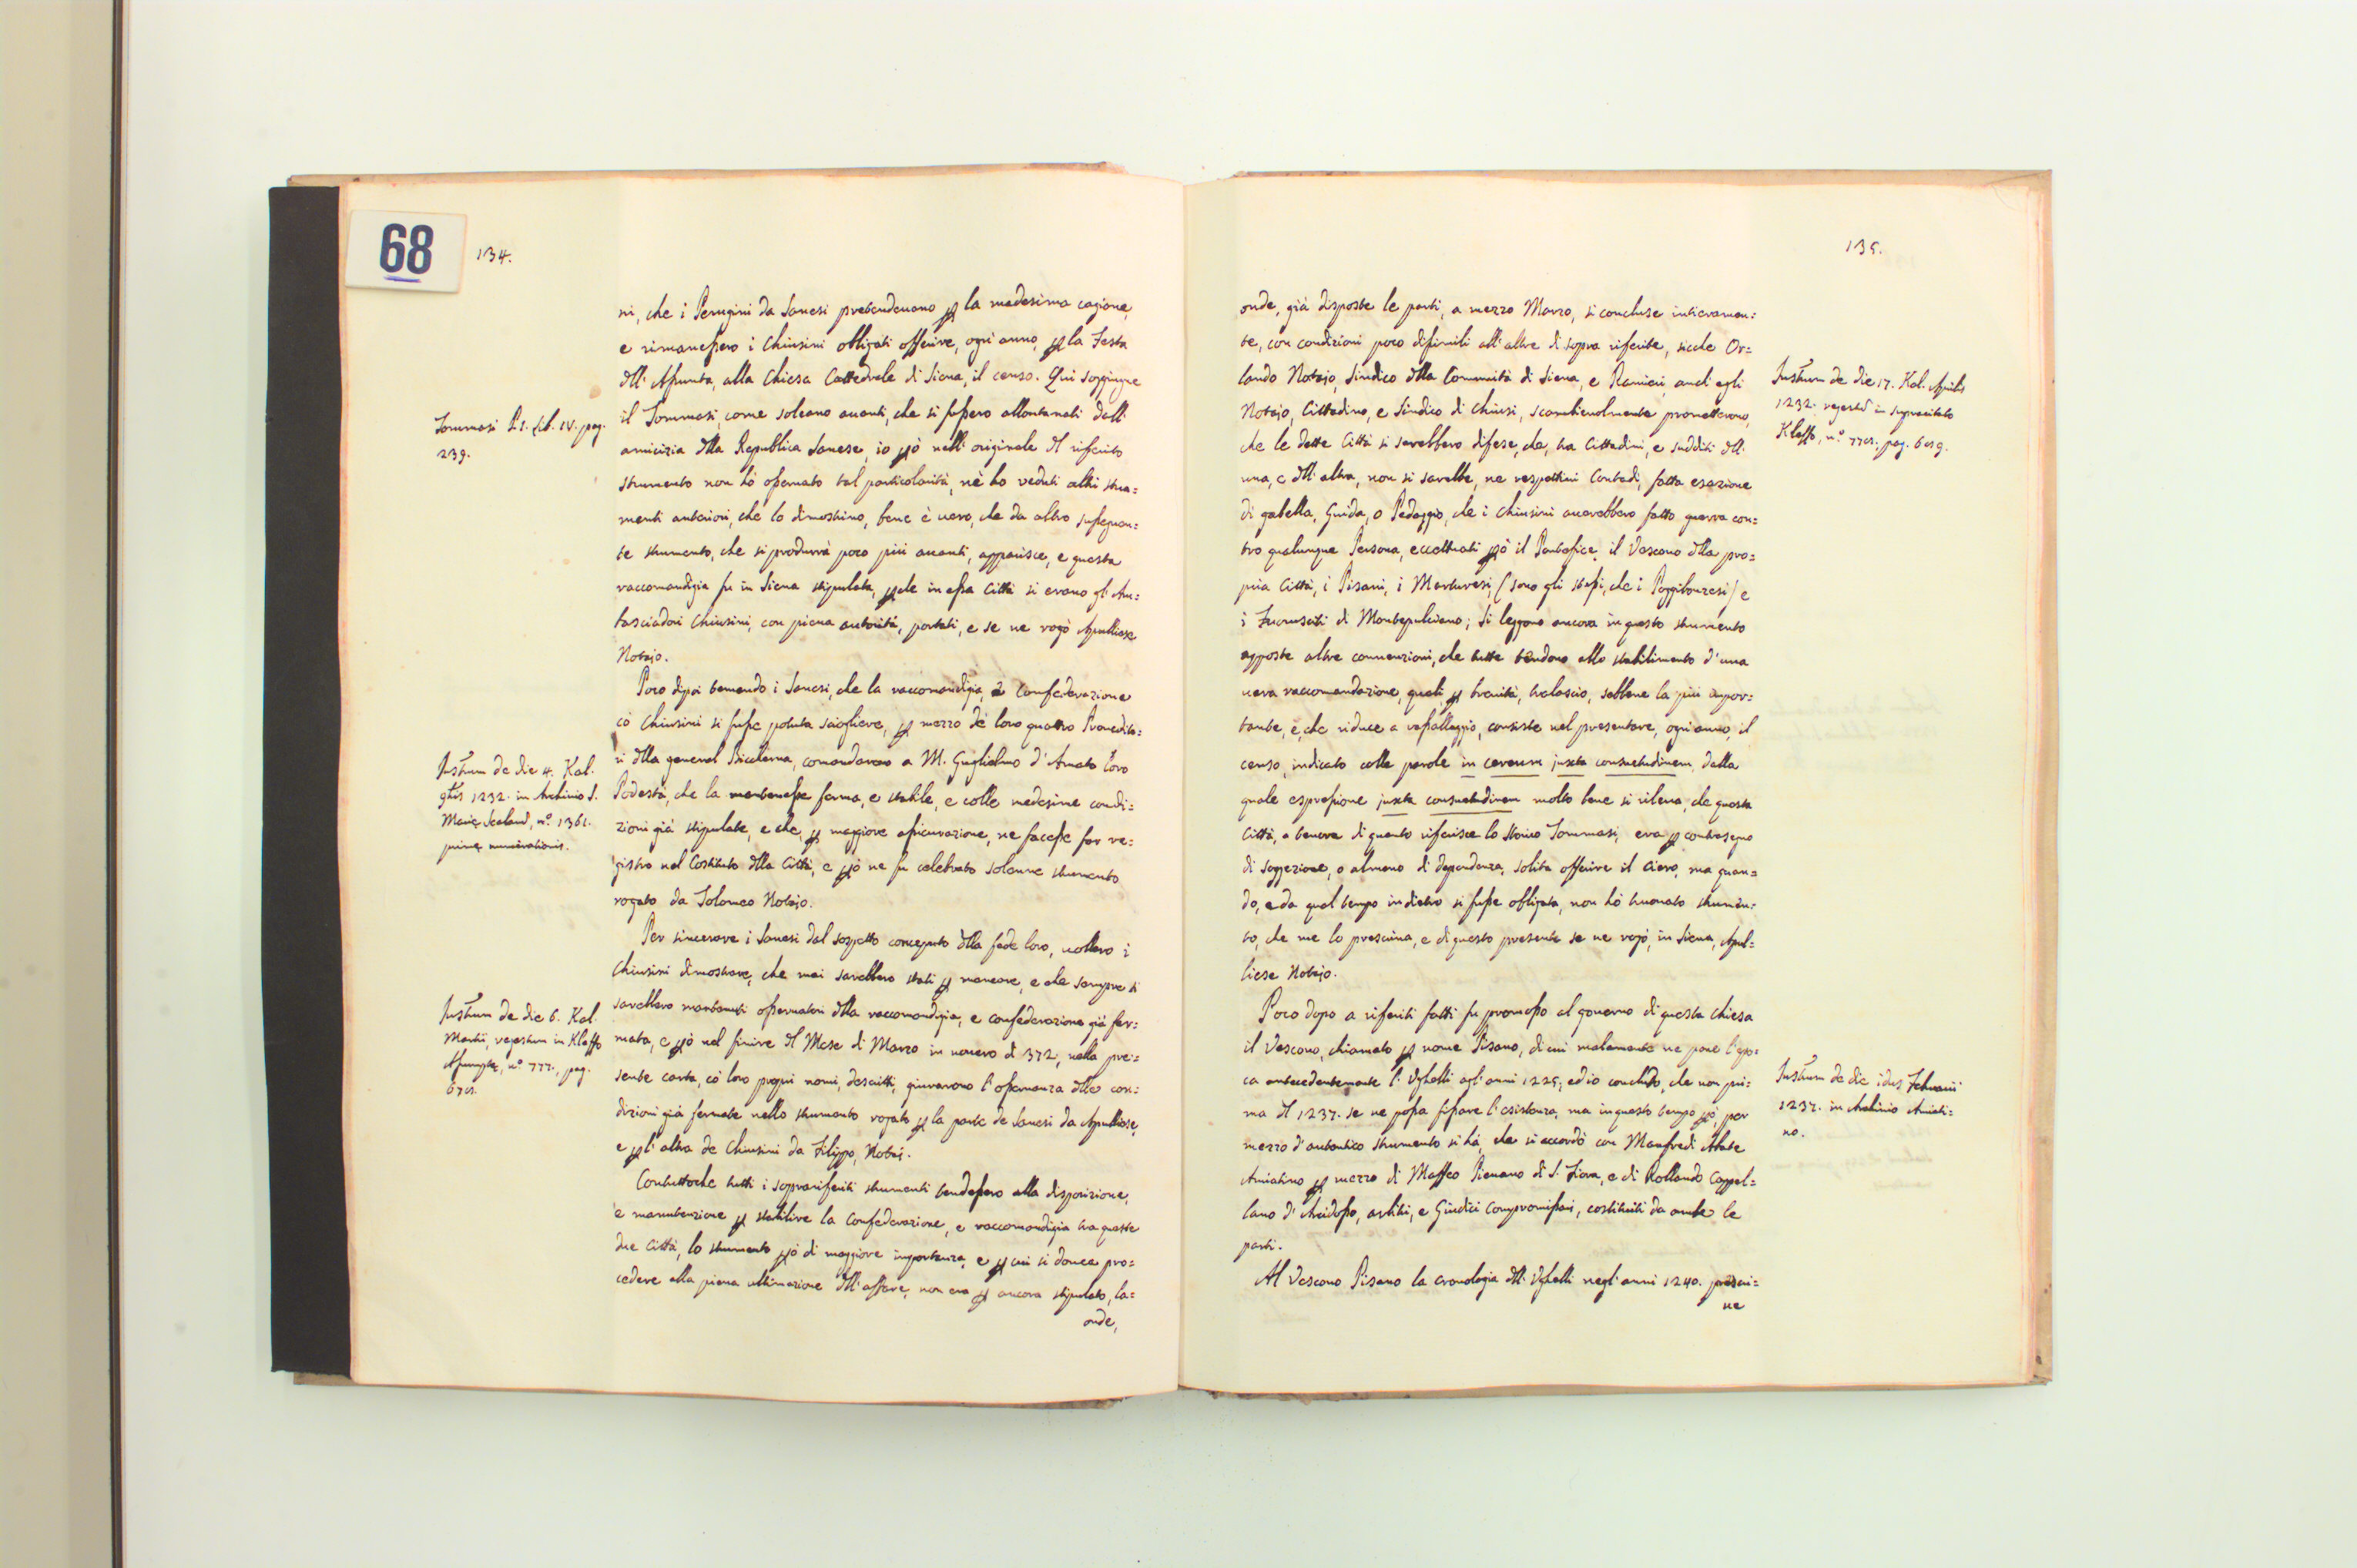 68
134.
ni, che i Perugini da Sanesi pretendeuano p la medesima cagione,
e rimanessero i Chiusini obbligati offerire, ogni anno, p la Festa
dll' Assunta, alla Chiesa Cattedrale di Siena, il censo. Qui soggiugne
il Tommasi, come soleano auanti, che si fussero allontanati dall'
amicizia dlla Republica Sanese, io pò nell' originale dl riferito
strumento non hò osseruato tal particolarità, nè ho veduti altri stru=
menti anteriori, che lo dimostrino, bene è uero, che da altro susseguen=
te strumento, che si produrrà poco più auanti, apparisce, e questa
raccomandigia fu in Siena stipulata, pche in essa Città si erano gl' Am=
basciadori Chiusini, con piena autorità, portati, e se ne rogò Apulliese
Notajo.
Tommasi P. 1. Lib. IV. pag.
239.
Poco dipoi temendo i Sanesi, che la raccomandigia, e Confederazione
cò Chiusini si fusse potuta sciogliere, p mezzo dè loro quattro Proueditо=
ri dlla general Biccherna, comandarono a M. Guglielmo d' Amato loro
Podestà, che la mantenesse ferma, e stabile, e colle medesime condi=
zioni già stipulate, e che, p maggiore assicurazione, ne facesse far re=
gistro nel Costituto dlla Città, e pò ne fu celebrato solenne strumento
rogato da Tolomeo Notajo.
Instrum de die 4. Kal.
gbris 1232. in Archiuio S.
Marię Scalarũ, n.º 1361.
primę numerationis.
Per sincerare i Sanesi dal sospetto conceputo dlla fede loro, uollero i
Chiusini dimostrare, che mai sarebbero stati p mancare, e che sempre si
sarebbero mantenuti osseruatori dlla raccomandigia, e confederazione già fer=
mata, e pò nel finire dl Mese di Marzo in nouero di 372, nella pre=
sente carta, cò loro propri nomi, descritti, giurarono l' osseruanza dlle con=
dizioni già fermate nello strumento rogato p la parte de Sanesi da Apulliese,
e p l' altra de Chiusini da Filippo, Notai.
Instrum de die 6. Kal.
Martii, regestum in Kleffo
n.º 777., pag.
Contuttoche tutti i sopranriferiti strumenti tendessero alla disposizione,
e manutenzione p stabilire la Confederazione, e raccomandigia tra queste
due Città, lo strumento pò di maggiore importanza, e p cui si douea pro=
cedere alla piena ultimazione dll' affare, non era p ancora stipulato, la=
onde,
135.
onde, già disposte le parti, a mezzo Marzo, si concluse intieramen=
te, con condizioni poco dissimili all' altre di sopra riferite, sicche Or=
lando Notajo, Sindico dlla Comunità di Siena, e Ranieri, anch' egli
Notajo, Cittadino, e Sindico di Chiusi, scambieuolmente promettevono,
che le dette Città si sarebbero difese, che, tra Cittadini, e sudditi dll'
una, e dll' altra, non si sarebbe, ne respettiui Contadi, fatta esazione
di gabella, Guida, o Pedaggio, che i Chiusini auerebbero fatto guerra con=
tro qualunque Persona, eccettuati pò il Pontefice, il Vescouo dlla pro=
pria Città, i Pisani, i Marturesi, (sono gli stessi, che i Poggibonzesi) e
i Fuorusciti di Montepulciano; Si leggono ancora in questo strumento
apposte altre conuenzioni, che tutte tendono allo stabilimento d' una
uera raccomandazione, quali p breuità, tralascio, sebbene la più impor=
tante, e, che riduce a vassallaggio, consiste nel presentare, ogni anno, il
censo, indicato colle parole in cereum juxta consuetudinem, dalla
quale espressione juxta consuetudinem molto bene si rileua, che questa
Città, a tenore di quanto riferisce lo storico Tommasi, era p contrasegno
di soggezione, o almeno di dependenza, solita offerire il Ciero, ma quan=
do, e da qual tempo indietro si fusse obbligata, non hò truouato strumen=
to, che me lo prescriua, e di questo presente se ne rogò, in Siena, Apul=
liese Notajo.
Instrum de die 17. Kal. Aprilis
1232. regestũ in supracitato
Kleffo, n.º pag.
Poco dopo a riferiti fatti fu promosso al gouerno di questa Chiesa
il Vescouo, chiamato p nome Pisano, di cui malamente ne pone l' epo=
ca antecedentemente l' Ughelli agl' anni 1225; ed io concludo, che non pri=
ma dl 1237. se ne possa fissare l' esistenza, ma in questo tempo pò, per
mezzo d' autentico strumento si hà, che si accordò con Manfredi Abate
Amiatino p mezzo di Maffeo Pieuano di S. Fiora, e di Rollando Cappel=
lano d' Arcidosso, arbitri, e Giudici Compromissari, costituiti da ambe le
parti.
Instrum de die idus Februarii
1237. in Archiuio Amiati=
no.
Al Vescouo Pisano la cronologia dll' Ughelli negl' anni 1240. prescri=
ue